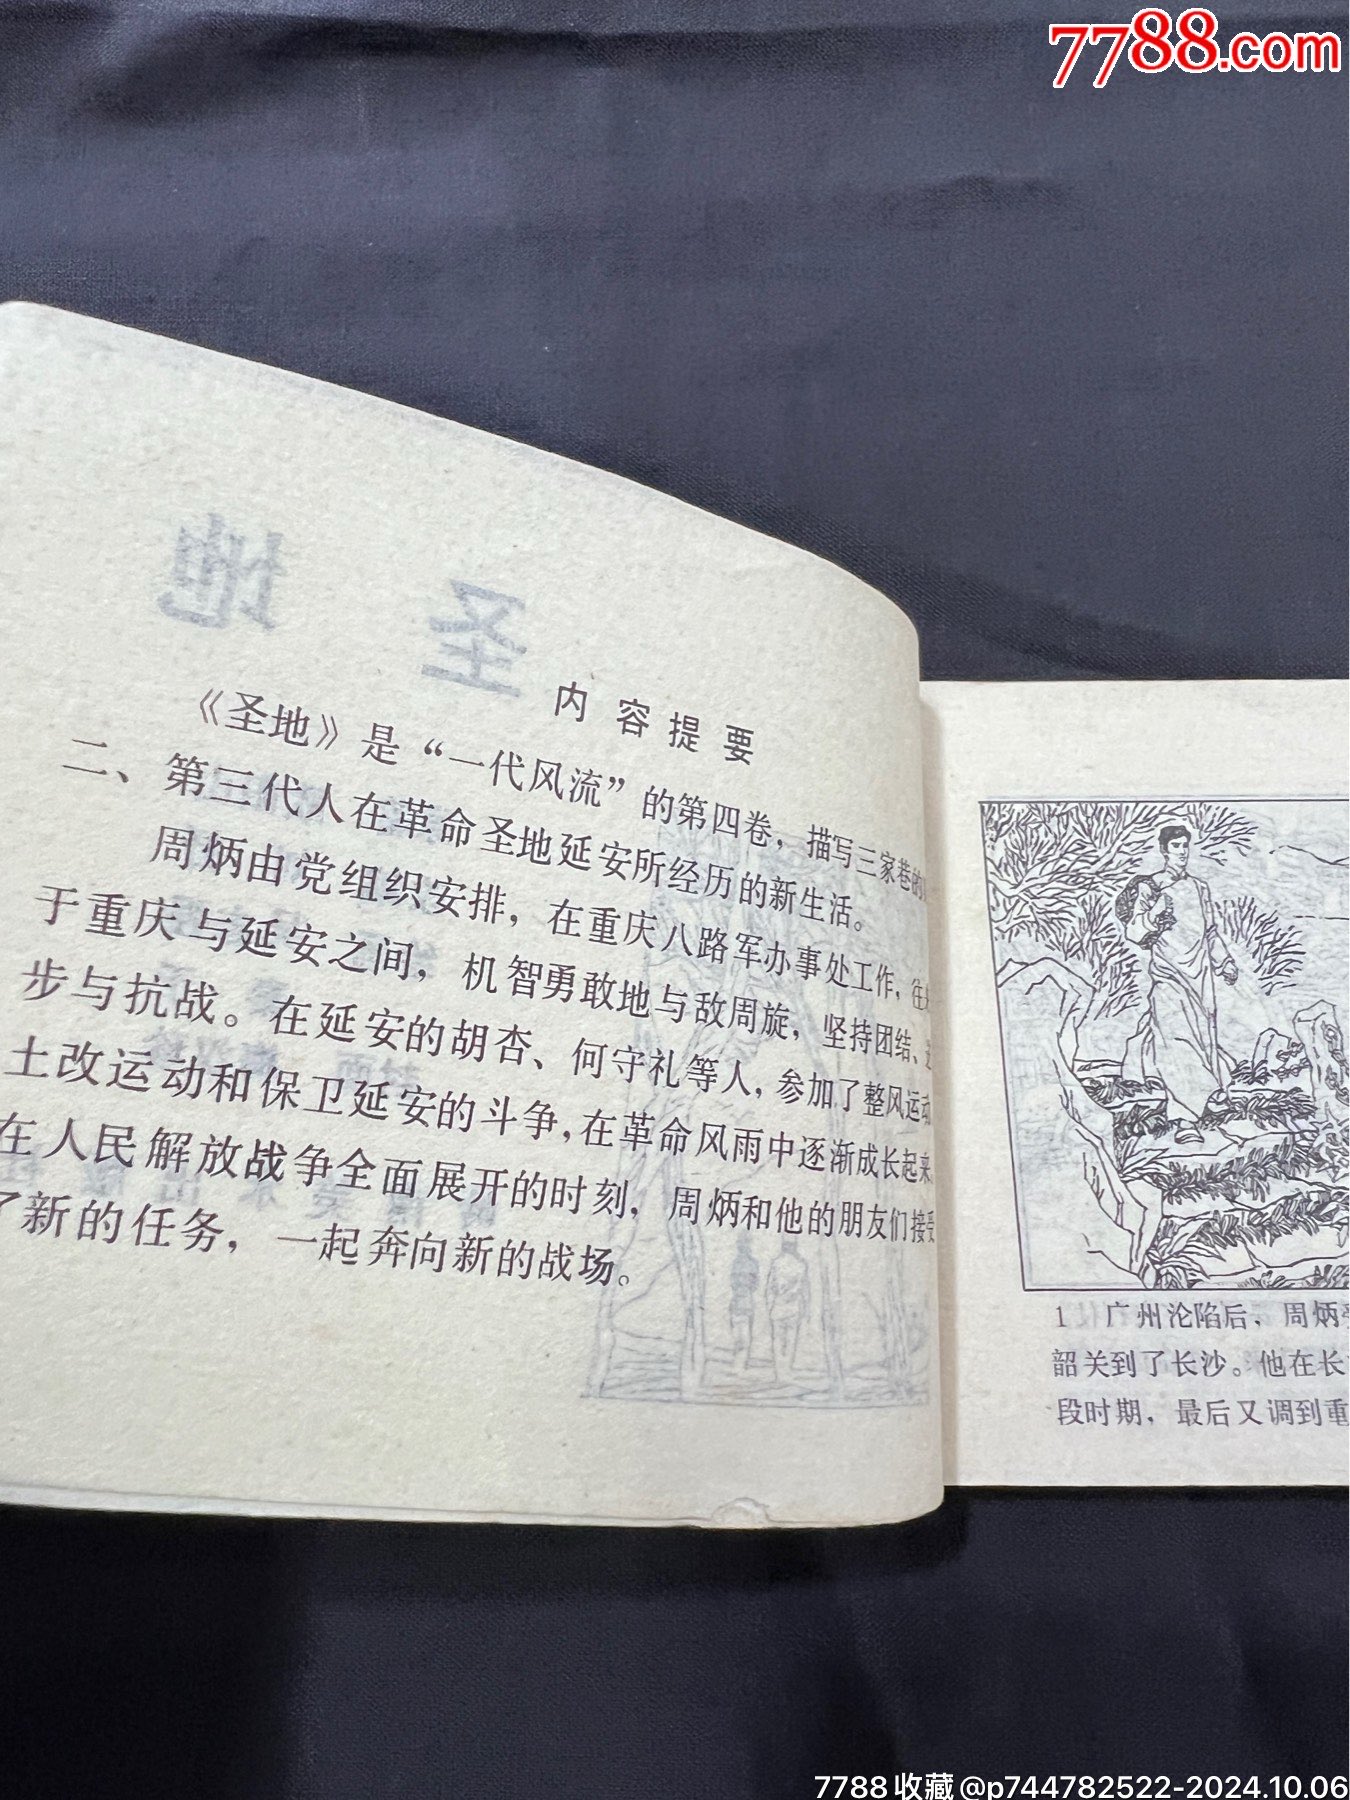 7788.com
圣 地
内容提要
《圣地》是“一代风流”的第四卷，描写三家巷的
二、第三代人在革命圣地延安所经历的新生活。
周炳由党组织安排，在重庆八路军办事处工作，往
于重庆与延安之间，机智勇敢地与敌周旋，坚持团结、
步与抗战。在延安的胡杏、何守礼等人，参加了整风运动
土改运动和保卫延安的斗争，在革命风雨中逐渐成长起来
在人民解放战争全面展开的时刻，周炳和他的朋友们接受
了新的任务，一起奔向新的战场。
1 广州沦陷后，周炳
韶关到了长沙。他在长
段时期，最后又调到重
7788收藏@p744782522-2024.10.06